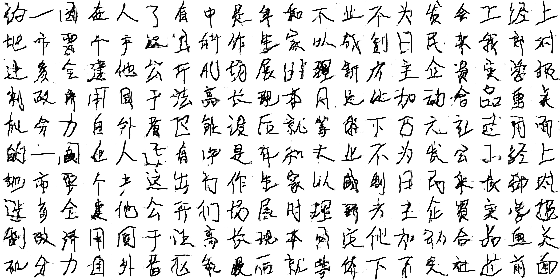 的一国在人了有中是年和不业不为发会工经上
地市要个产这出行作生家以成到日民来我部对
进多全建他公开们场展时理新方主企资实学报
制政济用同于法高长现本月定化加动合品重关
机分力自外者区能设后就等体下万元社过前面
的一国在人了有中是年和大业不为发会工经上
地市要个产这出行作生家以成到日民来我部对
进多全建他公开们场展时理新方主企资实学报
制政济用同于法高长现本月定化加动合品重关
机分力自外者区能设后就等体下万元社过前面